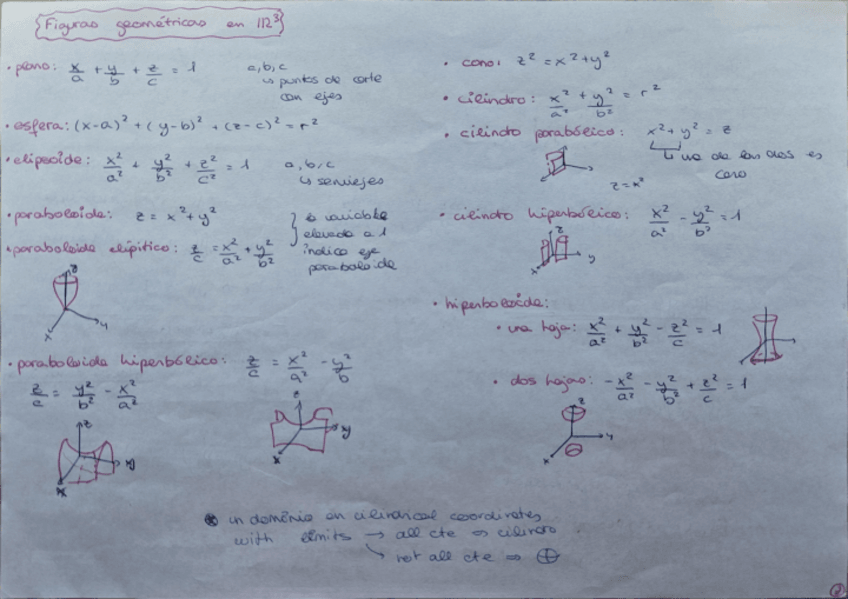 Figuras geométricas en ℝ³
• plano: x/a + y/b + z/c = 1
a, b, c
↳ puntos de corte
con ejes
• esfera: (x-a)² + (y-b)² + (z-c)² = r²
• elipsoide: x²/a² + y²/b² + z²/c² = 1
a, b, c
↳ semiejes
• paraboloide: z = x² + y²
• paraboloide elíptico: z/c = x²/a² + y²/b²
} la variable
elevada a 1
indica eje
paraboloide
z
x
y
• paraboloide hiperbólico: z/c = x²/a² - y²/b
z/c = y²/b² - x²/a²
z
x
y
z
x
y
• cono: z² = x² + y²
• cilindro: x²/a² + y²/b² = r²
• cilindro parabólico: x² + y² = z
↳ una de las dos es
cero
z = x²
• cilindro hiperbólico: x²/a² - y²/b² = 1
z
x
y
• hiperboloide:
• una hoja: x²/a² + y²/b² - z²/c = 1
• dos hojas: -x²/a² - y²/b² + z²/c = 1
z
x
y
in domínio en cilindrical coordinates
with limits → all cte ⇒ cilindro
↘ not all cte ⇒